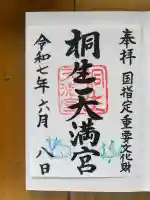 奉拝 国指定重要文化財
桐生天満宮
令和七年六月八日